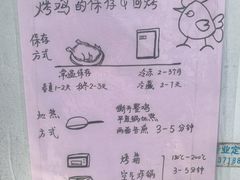 烤鸡的保存和回烤
保存
方式
常温保存
冷冻 2-3个月
春夏1-2天 秋冬2-3天
冷藏 2-7天
加热
方式
撕开整鸡
平底锅加热
两面各煎 3-5分钟
烤箱
180℃-200℃
3-5分钟
空气炸锅